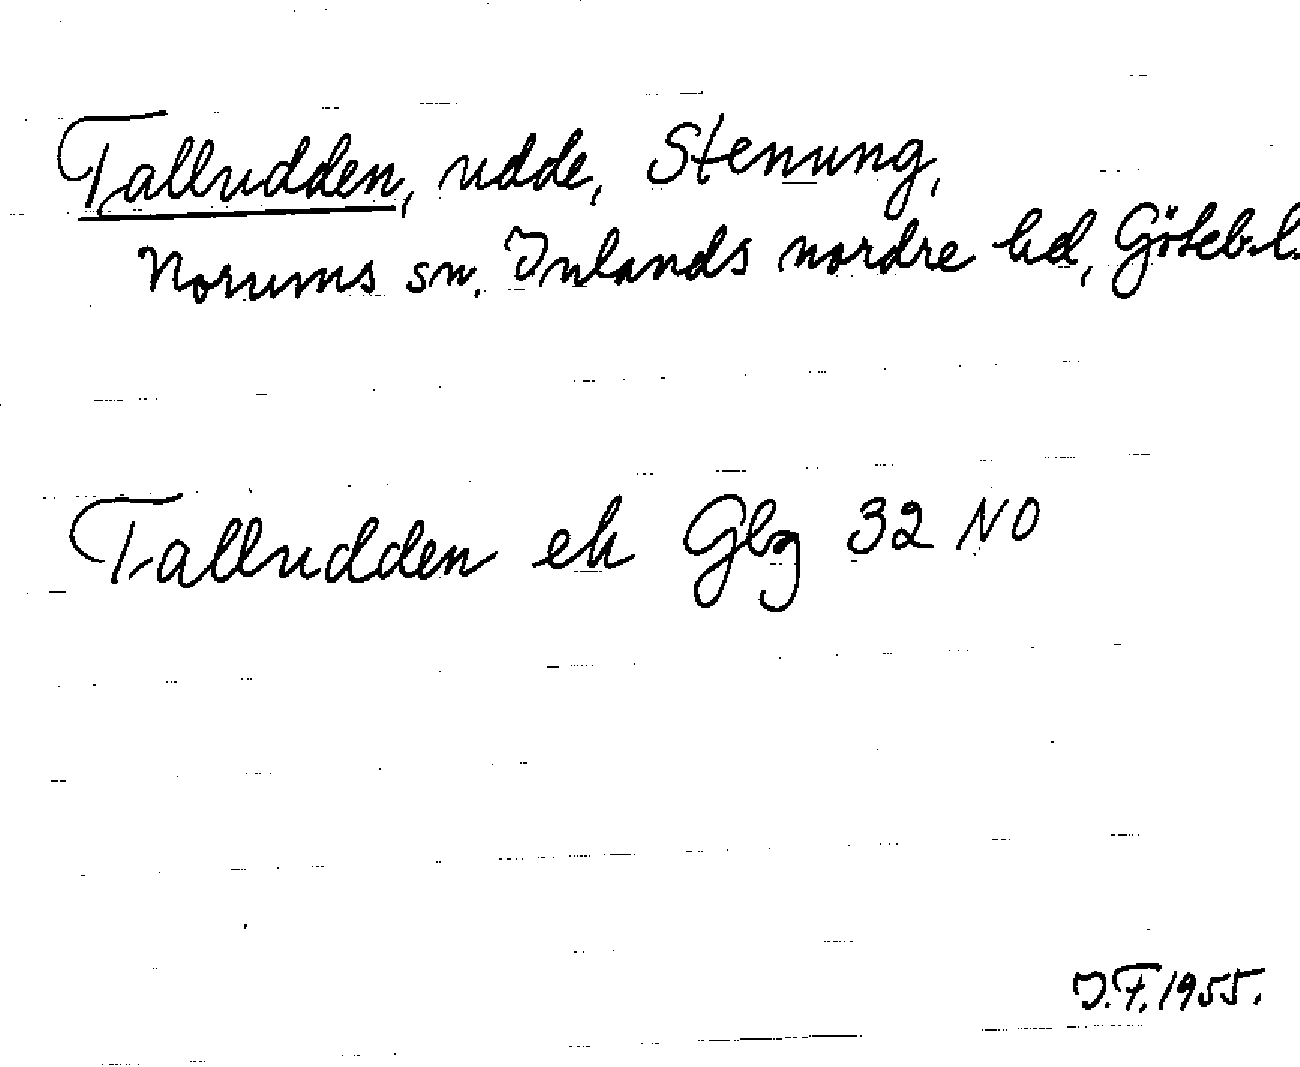 Talludden, udde, Stenung,
Norums sn. Inlands nordre hd, Göteb.l.
Talludden ek Gbg 32 NO
I.F. 1955.